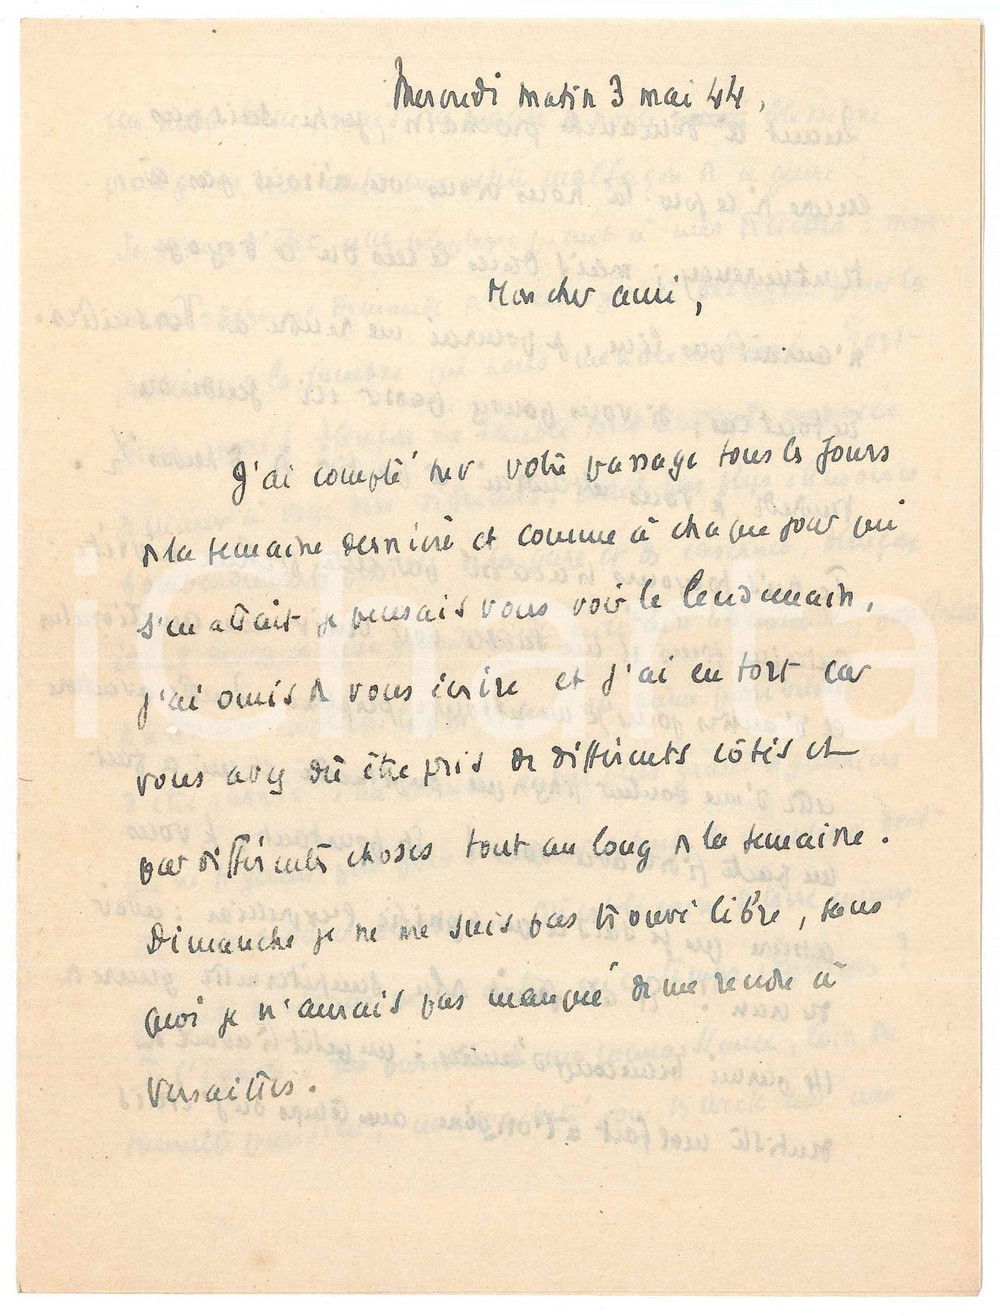 Mercredi matin 3 mai 44,
Mon cher ami,
J'ai compté sur votre passage tous les jours
de la semaine dernière et comme à chaque jour qui
s'en allait je pensais vous voir le lendemain,
j'ai omis de vous écrire et j'ai eu tort car
vous avez dû être pris de différents côtés et
par différentes choses tout au long de la semaine.
Dimanche je ne me suis pas trouvé libre, sans
quoi je n'aurais pas manqué de me rendre à
Versailles.
icnarta